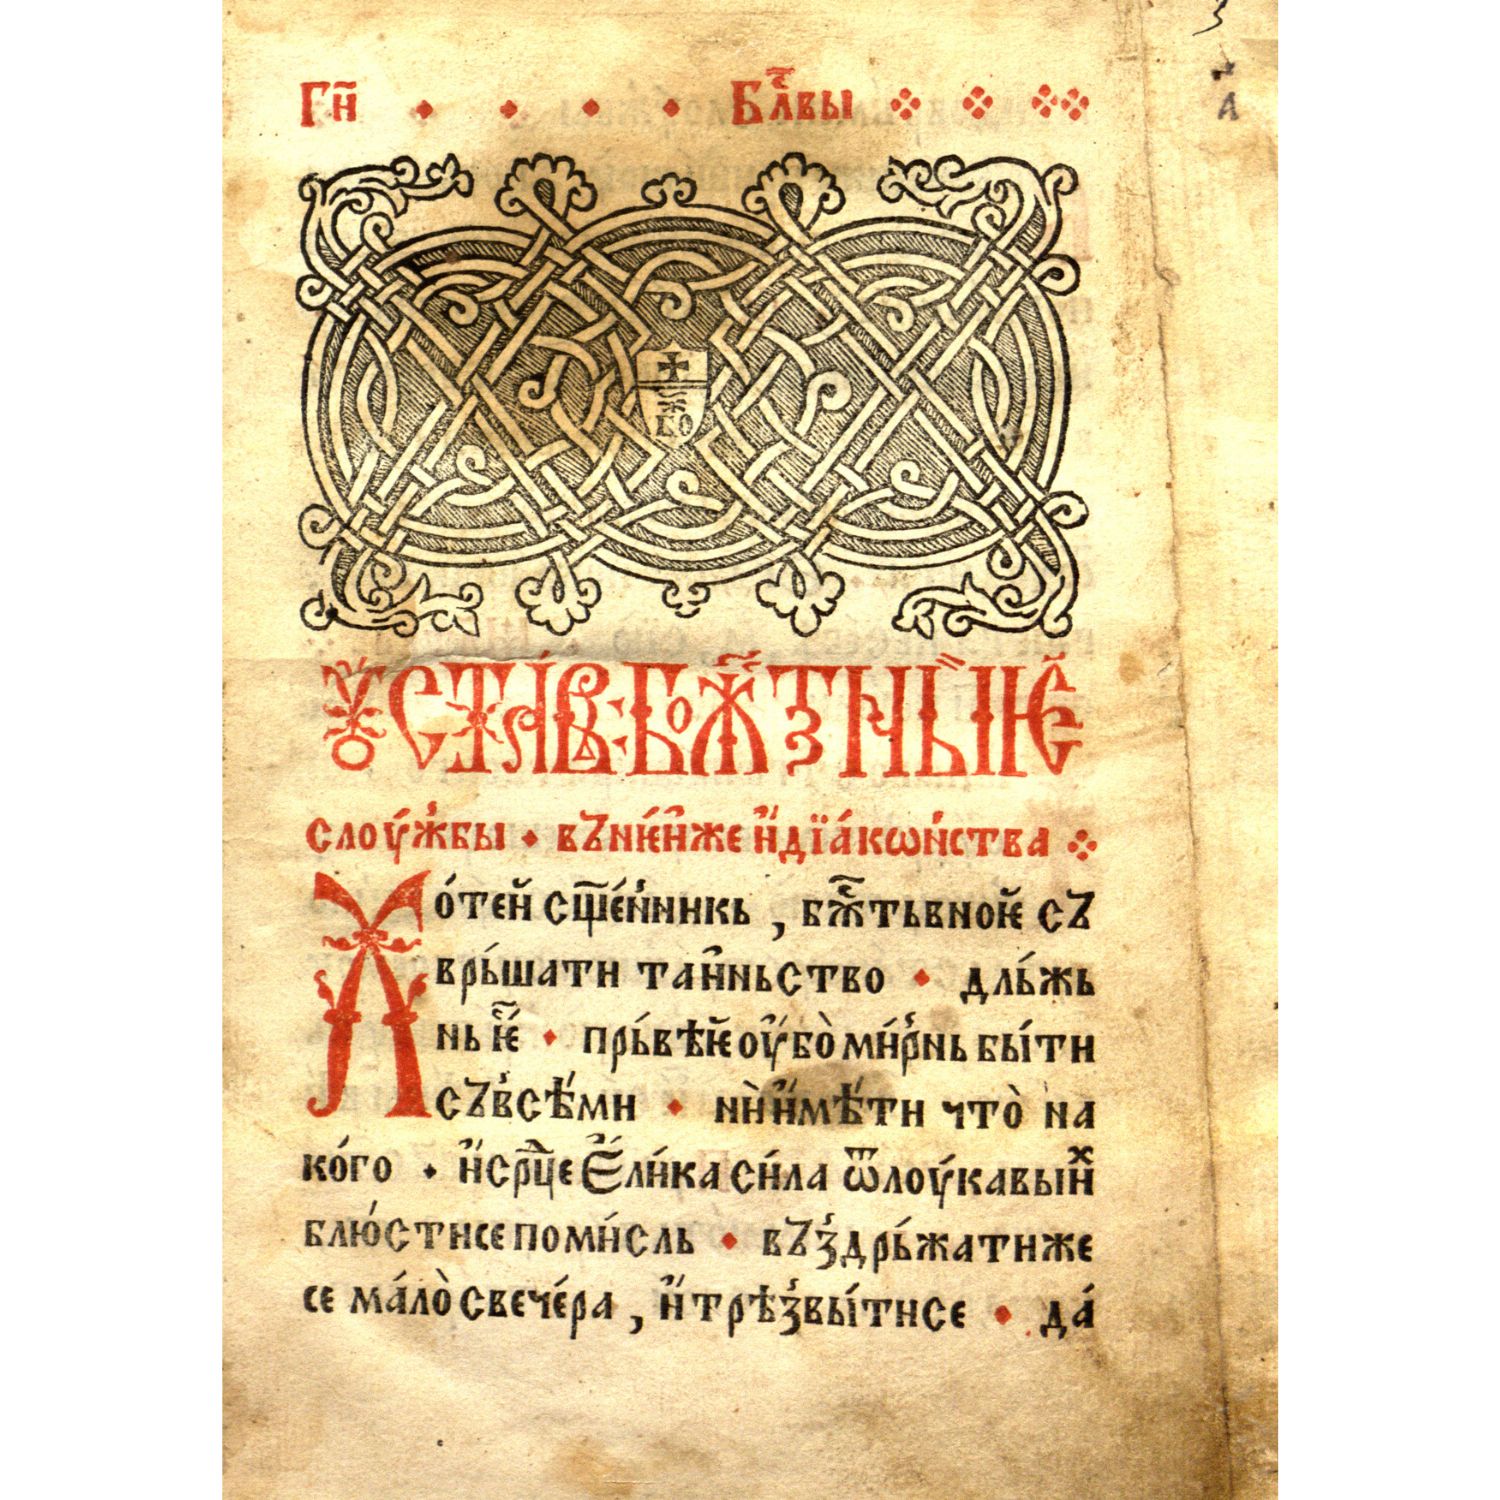 3
а҃
Гн҃ Бл҃ви
КО
Уста́в бж҃тⷡ҇ныѥ
слоу́жбы · въ нѥ́нже и҆ дїа́кѡнства
Хо́тей сщ҃е́нникь , бжⷭ҇тьвноѥ съ
врь́шати таи҆ньство · дль́жь
нь ѥ҆́ⷭ · прь́вѣѥ оу҆́бо̀ ми́рнь бы́ти
съ всѣ́ми · нѝ и҆мѣ́ти что̀ на
ко́го · и҆ срⷣце е҆ли́ка си́ла ѿ лоу́кавыиⷯ
блю́сти се поми́сль · въз̾дрь́жати же
се ма́ло̀ с вече́ра , и҆ трѣз̾вы́ти се · да́